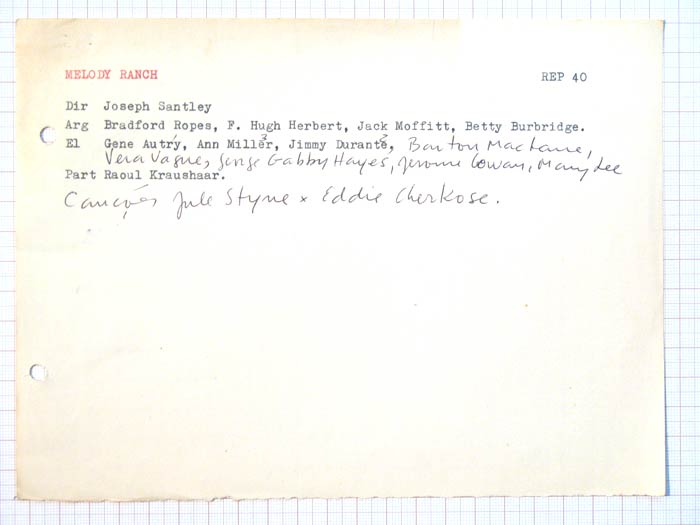 MELODY RANCH REP 40
Dir Joseph Santley
Arg Bradford Ropes, F. Hugh Herbert, Jack Moffitt, Betty Burbridge.
El Gene Autry, Ann Miller, Jimmy Durante, Barton MacLane,
Vera Vague, George Gabby Hayes, Jerome Cowan, Mary Lee
Part Raoul Kraushaar.
Canções Jule Styne x Eddie Cherkose.